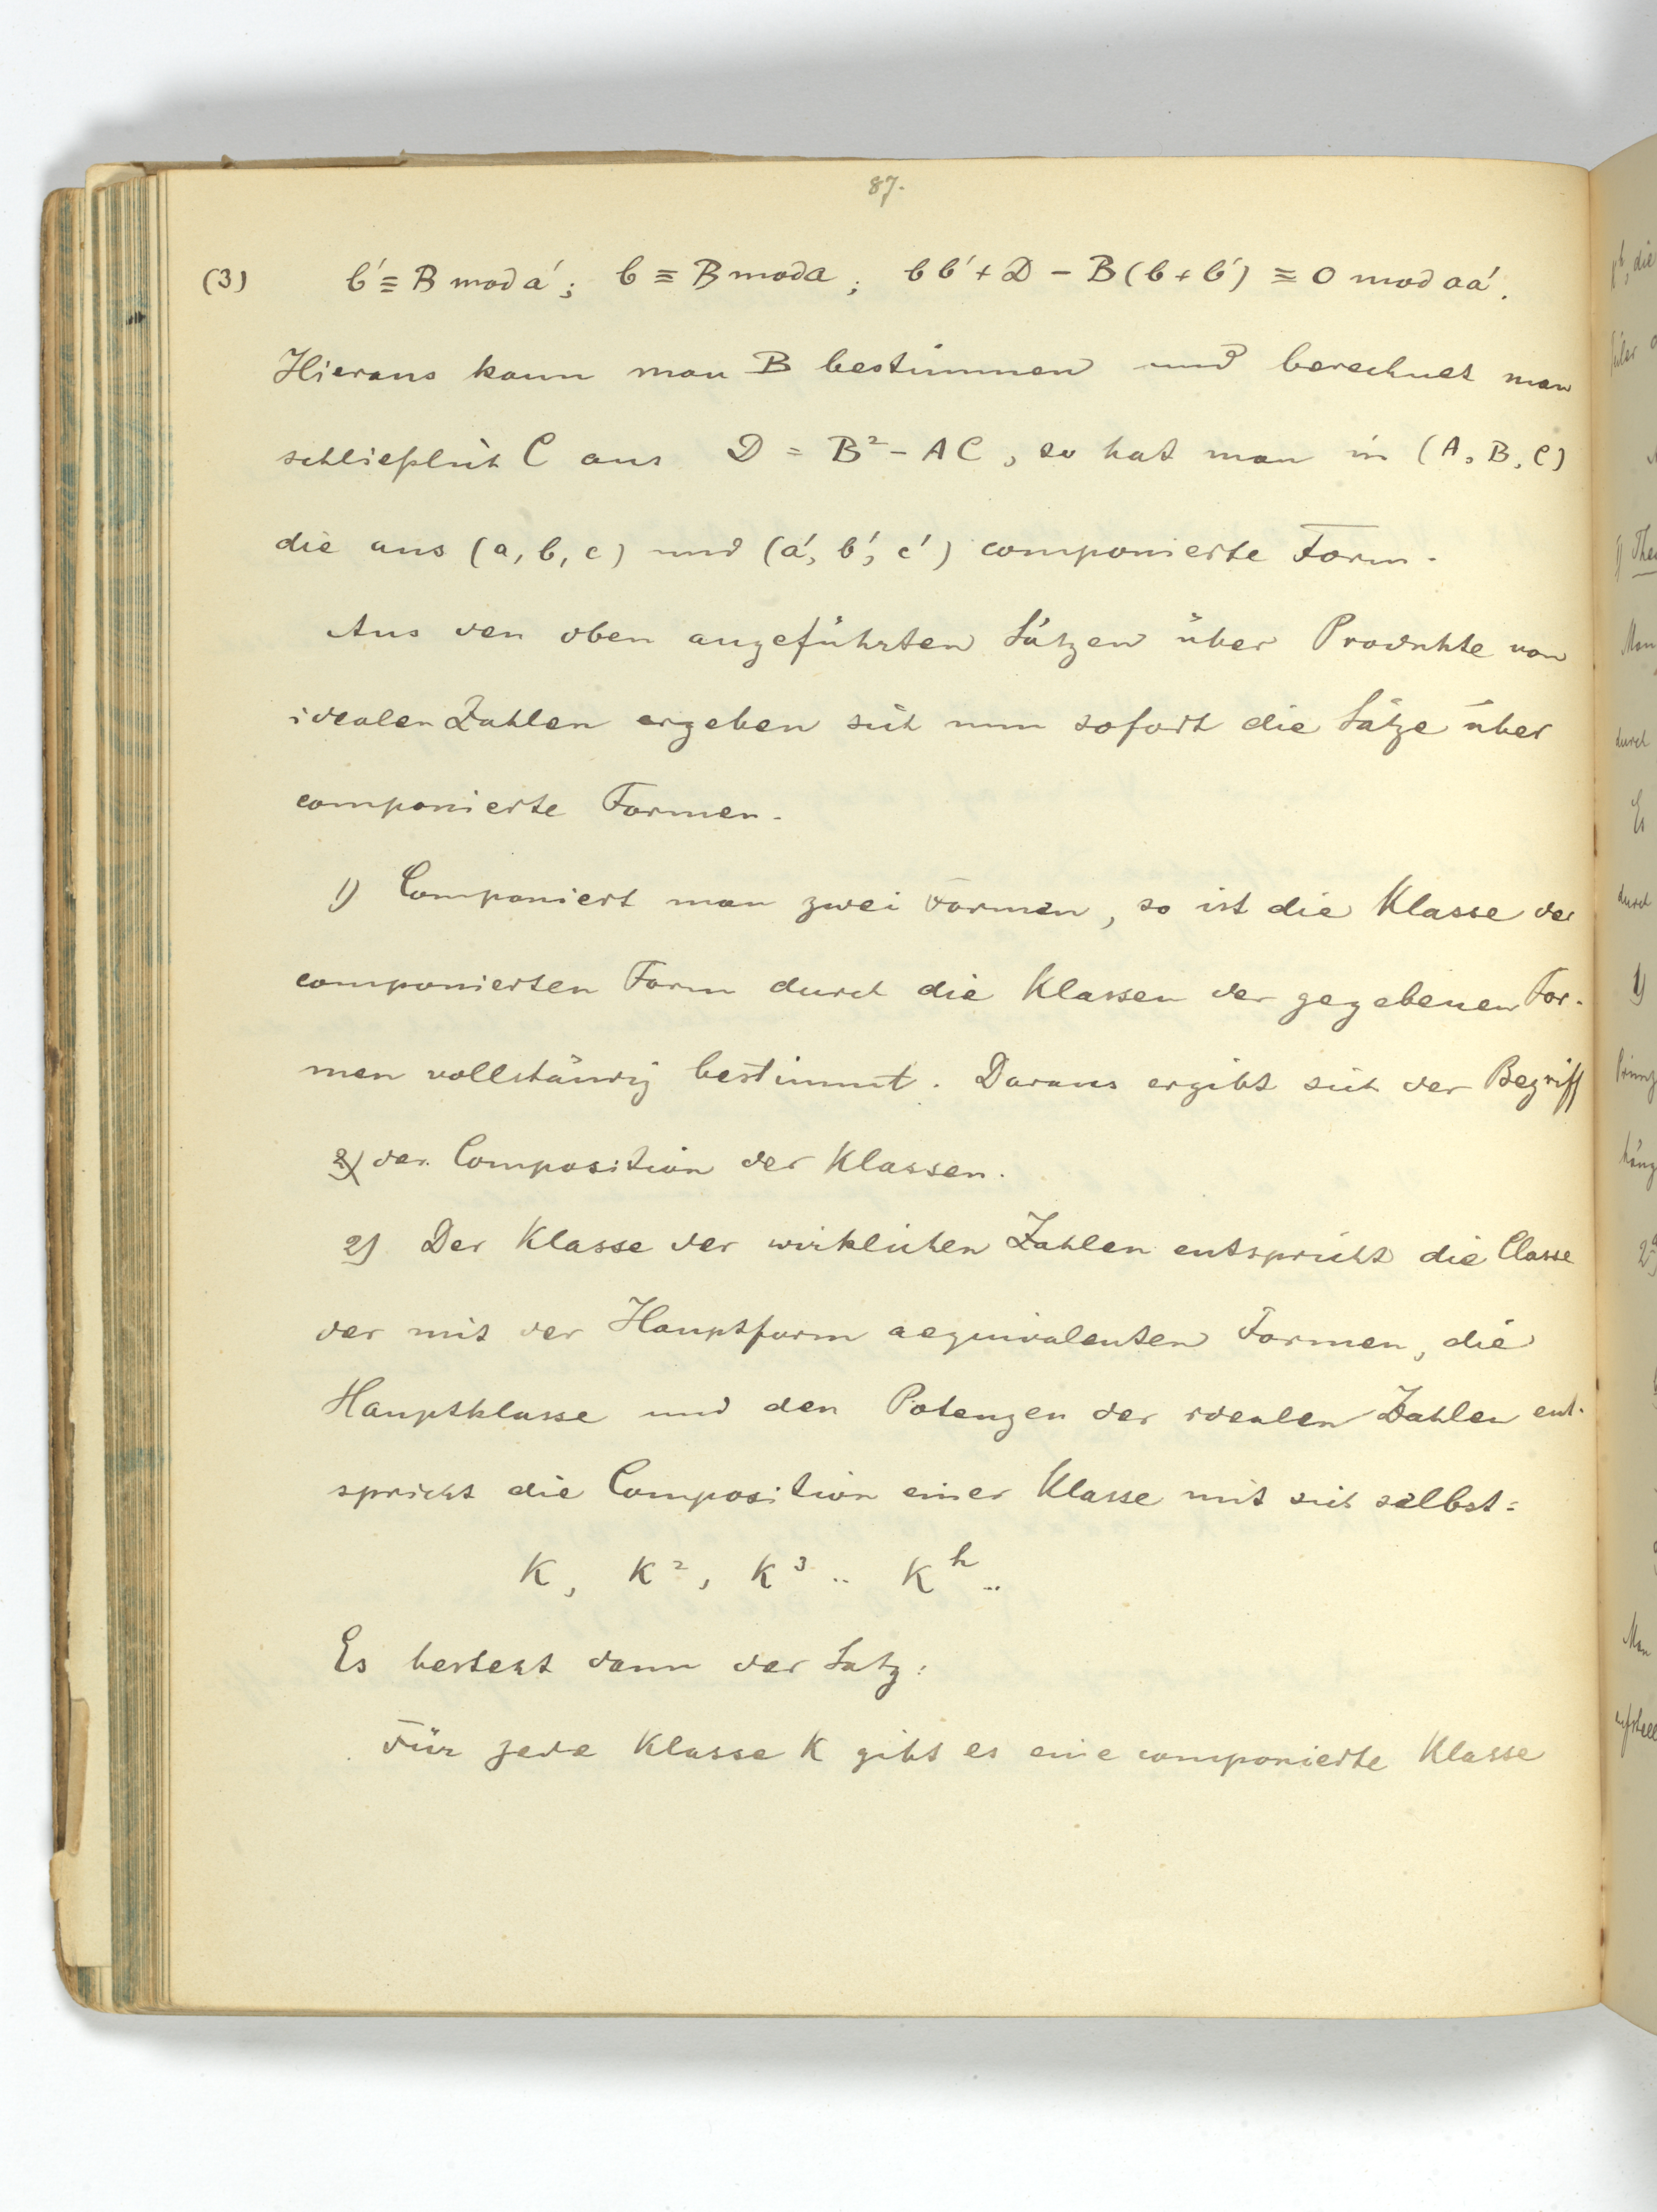 87.
(3) b' ≡ B mod a'; b ≡ B mod a; bb' + D - B(b+b') ≡ 0 mod aa'.
Hieraus kann man B bestimmen und berechnet man
schließlich C aus D = B² - AC, so hat man in (A, B, C)
die aus (a, b, c) und (a', b', c') componierte Form.
Aus den oben angeführten Sätzen über Produkte von
idealen Zahlen ergeben sich nun sofort die Sätze über
componierte Formen.
1) Componiert man zwei Formen, so ist die Klasse der
componierten Form durch die Klassen der gegebenen For-
men vollständig bestimmt. Daraus ergibt sich der Begriff
2) der Composition der Klassen.
2) Der Klasse der wirklichen Zahlen entspricht die Classe
der mit der Hauptform aequivalenten Formen, die
Hauptklasse und den Potenzen der idealen Zahlen ent-
spricht die Composition einer Klasse mit sich selbst:
K, K², K³ .. K^h ..
Es besteht dann der Satz:
Für jede Klasse K gibt es eine componierte Klasse
die
durch
Es
durch
1)